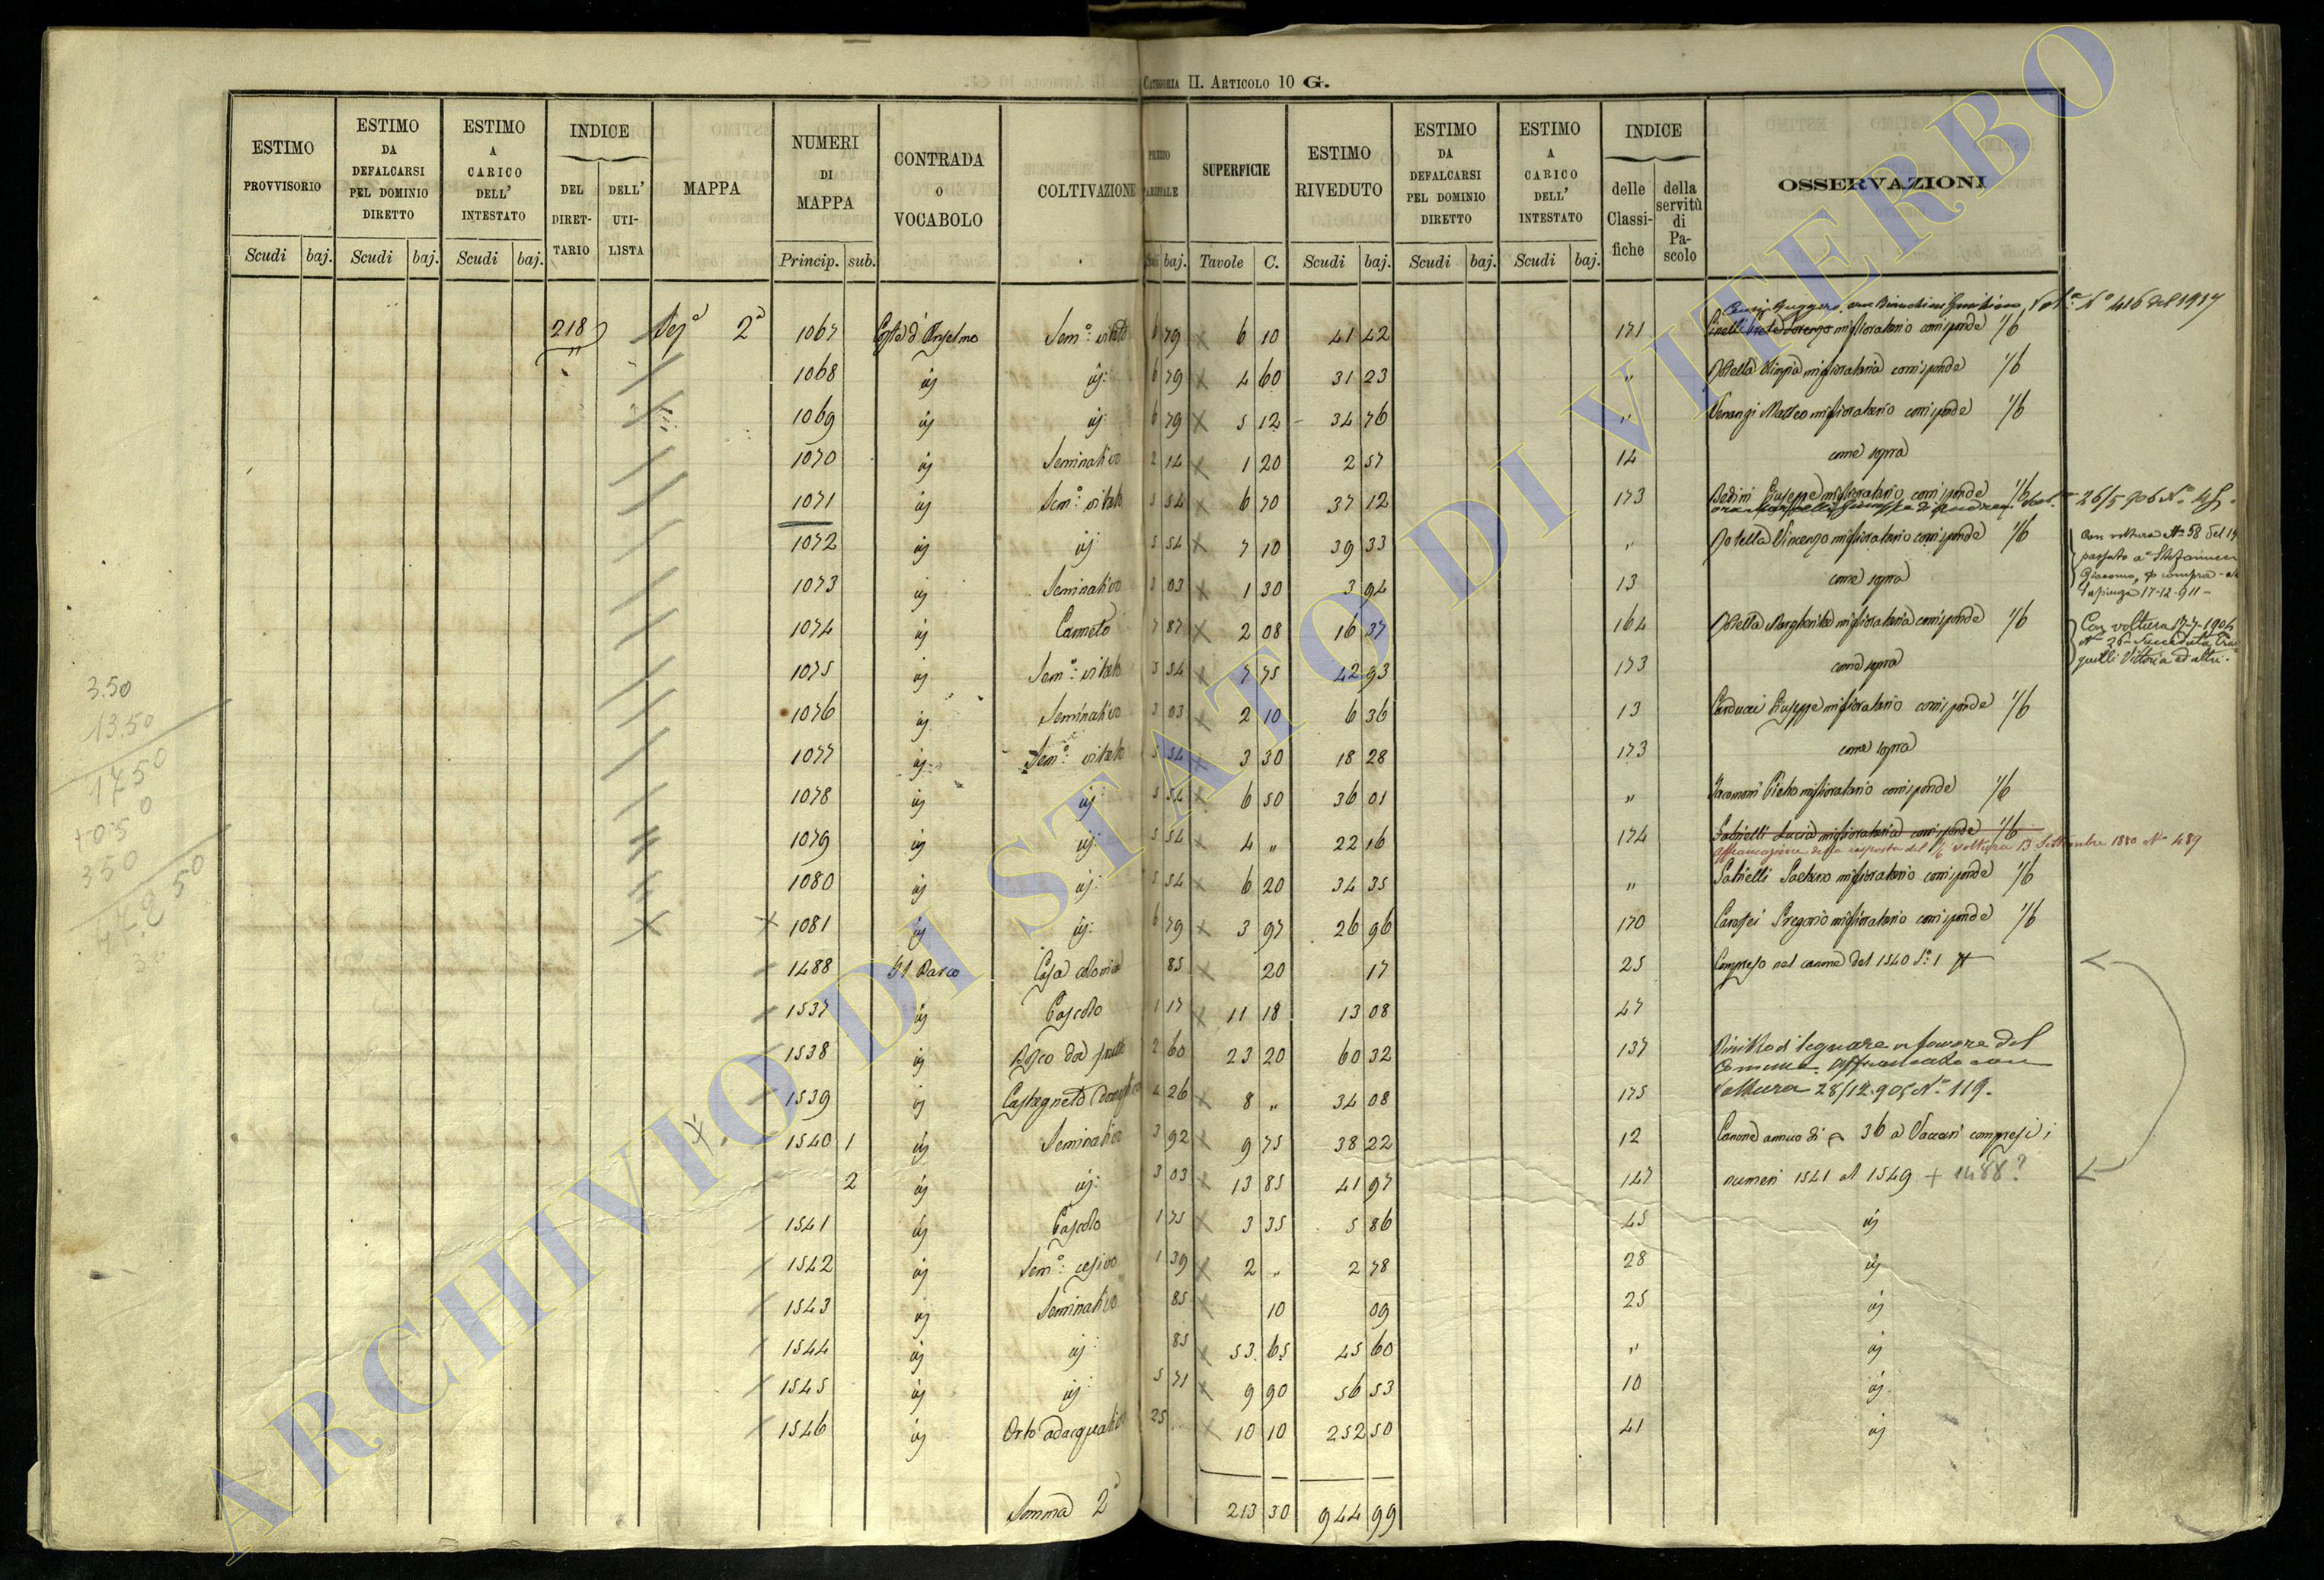 CATEGORIA II. ARTICOLO 10 G.
ESTIMO PROVVISORIO
ESTIMO DA DEFALCARSI PEL DOMINIO DIRETTO
ESTIMO A CARICO DELL' INTESTATO
INDICE
DEL DIRETTARIO
DELL' UTILISTA
MAPPA
NUMERI DI MAPPA
CONTRADA O VOCABOLO
COLTIVAZIONE
PREZZO
SUPERFICIE
ESTIMO RIVEDUTO
ESTIMO DA DEFALCARSI PEL DOMINIO DIRETTO
ESTIMO A CARICO DELL' INTESTATO
INDICE
delle Classifiche
della servitù di Pascolo
OSSERVAZIONI
Scudi baj. Scudi baj. Scudi baj. Princip. sub. baj. Tavole C. Scudi baj. Scudi baj. Scudi baj.
Volra No 416 del 1917
218 2a 1067 Costa d'Anselmo Semo: vitato 6 79 6 10 41 42 171 miglioratario corrisponde 1/6
1068 id id: 6 79 4 60 31 23 " Olimpia migliorataria corrisponde 1/6
1069 id id: 6 79 5 12 34 76 " Matteo miglioratario corrisponde 1/6
1070 id Seminativo 2 14 1 20 2 57 14 come sopra
1071 id Semo: vitato 5 54 6 70 37 12 173 Bedini Giuseppe miglioratario corrisponde 1/6
26/5 906 No
1072 id id 5 54 7 10 39 33 " Vincenzo miglioratario corrisponde 1/6
Con voltura No 58 del 19
passato a Stefanucci
Giacomo, p compra
17-12-911
1073 id Seminativo 3 03 1 30 3 94 13 come sopra
1074 id Canneto 7 87 2 08 16 37 164 Margherita migliorataria corrisponde 1/6
Con voltura 17-7-1904
No 26 Succeduta
Vittoria ed altri
1075 id Semo: vitato 5 54 7 75 42 93 173 come sopra
1076 id Seminativo 3 03 2 10 6 36 13 Carducci Giuseppe miglioratario corrisponde 1/6
1077 id Semo: vitato 5 54 3 30 18 28 173 come sopra
1078 id id: 5 54 6 50 36 01 " Iacomoni Pietro miglioratario corrisponde 1/6
1079 id id: 5 54 4 " 22 16 174 Gabrielli Lucia migliorataria corrisponde 1/6
affrancazione della risposta del 1/6 voltura 13 Settembre 1880 No 489
1080 id id: 5 54 6 20 34 35 " Gabrielli Gaetano miglioratario corrisponde 1/6
1081 id id: 6 79 3 97 26 96 170 Gregorio miglioratario corrisponde 1/6
1488 Il Barco Casa colonica 85 20 17 25 Compreso nel canone del 1540 So: 1
1537 id Pascolo 1 17 11 18 13 08 47
1538 id Bosco da frutto 2 60 23 20 60 32 137 Diritto di legnare in favore del
Comune. Affrancato con
1539 id Castagneto 4 26 8 " 34 08 175 Voltura 28/12.905 No 119.
1540 1 id Seminativo 3 92 9 75 38 22 12 Canone annuo di 36 a Vaccari compresi i
2 id id: 3 03 13 85 41 97 147 numeri 1541 al 1549 + 1488?
1541 id Pascolo 1 75 3 35 5 86 45 id
1542 id Semo: cesivo 1 39 2 " 2 78 28 id
1543 id Seminativo 85 10 09 25 id
1544 id id: 85 53 65 45 60 " id
1545 id id: 5 71 9 90 56 53 10 id
1546 id Orto adacquativo 25 10 10 252 50 41 id
Somma 2a 213 30 944 99
3.50
13.50
1750
350
ARCHIVIO DI STATO DI VITERBO